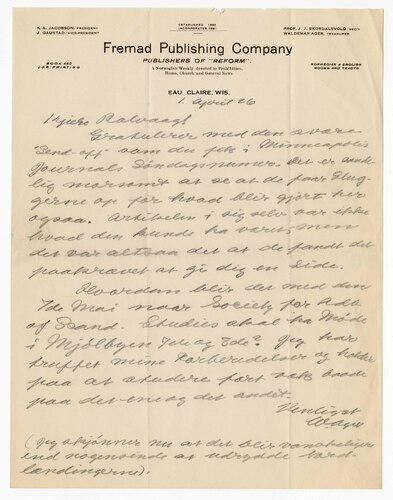 K. A. JACOBSON, PRESIDENT
J. GAUSTAD, VICE-PRESIDENT
ESTABLISHED 1890
INCORPORATED 1891
PROF. J. J. SKORDALSVOLD, SEC'Y
WALDEMAR AGER, TREASURER
Fremad Publishing Company
PUBLISHERS OF "REFORM"
A Norwegian Weekly devoted to Prohibition,
Home, Church and General News
BOOK AND
JOB PRINTING
NORWEGIAN & ENGLISH
BOOKS AND TRACTS
EAU CLAIRE, WIS.
1. April 26
Kjære Rølvaag!
Gratulerer med den svære
"Send-off" som du fik i Minneapolis
Journals Söndagsnumer. Det er
morsomt at se at de faar
gerne op for hvad blir gjort her
ogsaa. Artikelen i sig selv var ikke
hvad den kunde ha været, men
det var altsaa det at de fandt det
paakrævet at gi dig en Side.
Hvordan blir det med den
7de Mai naar Society for Adv.
of Scand. Studies skal ha Møde
i Mjölbyen 7de og 8de? Jeg har
truffet mine Forberedelser og holder
paa at studere fort væk baade
paa det ene og det andet.
Venligst
W. Ager
(Jeg skjönner nu at det blir vanskeligere
end nogensinde at udrydde Nord-
lændingerne).